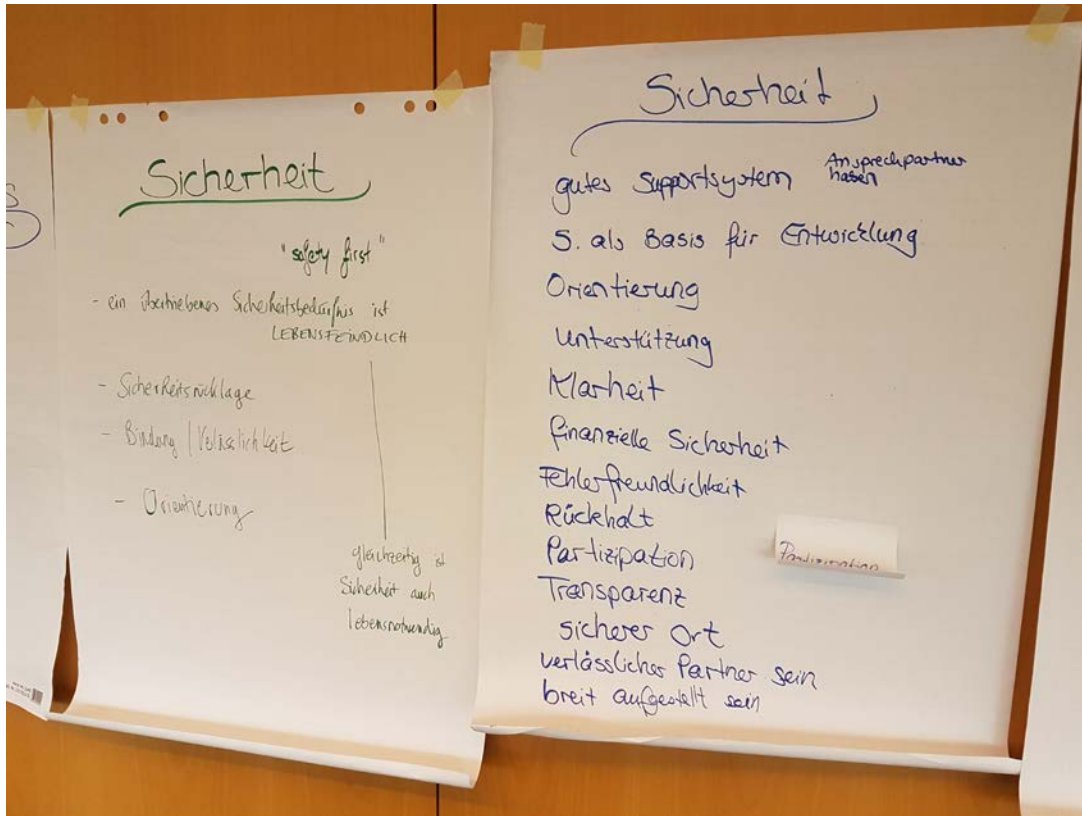 Sicherheit
"safety first"
- ein übertriebenes Sicherheitsbedürfnis ist
LEBENSFEINDLICH
- Sicherheitsrücklage
- Bindung / Verlässlichkeit
- Orientierung
gleichzeitig ist
Sicherheit auch
lebensnotwendig
Sicherheit
gutes Supportsystem
Ansprechpartner
haben
S. als Basis für Entwicklung
Orientierung
Unterstützung
Klarheit
finanzielle Sicherheit
Fehlerfreundlichkeit
Rückhalt
Partizipation
Transparenz
sicherer Ort
verlässlicher Partner sein
breit aufgestellt sein
Partizipation